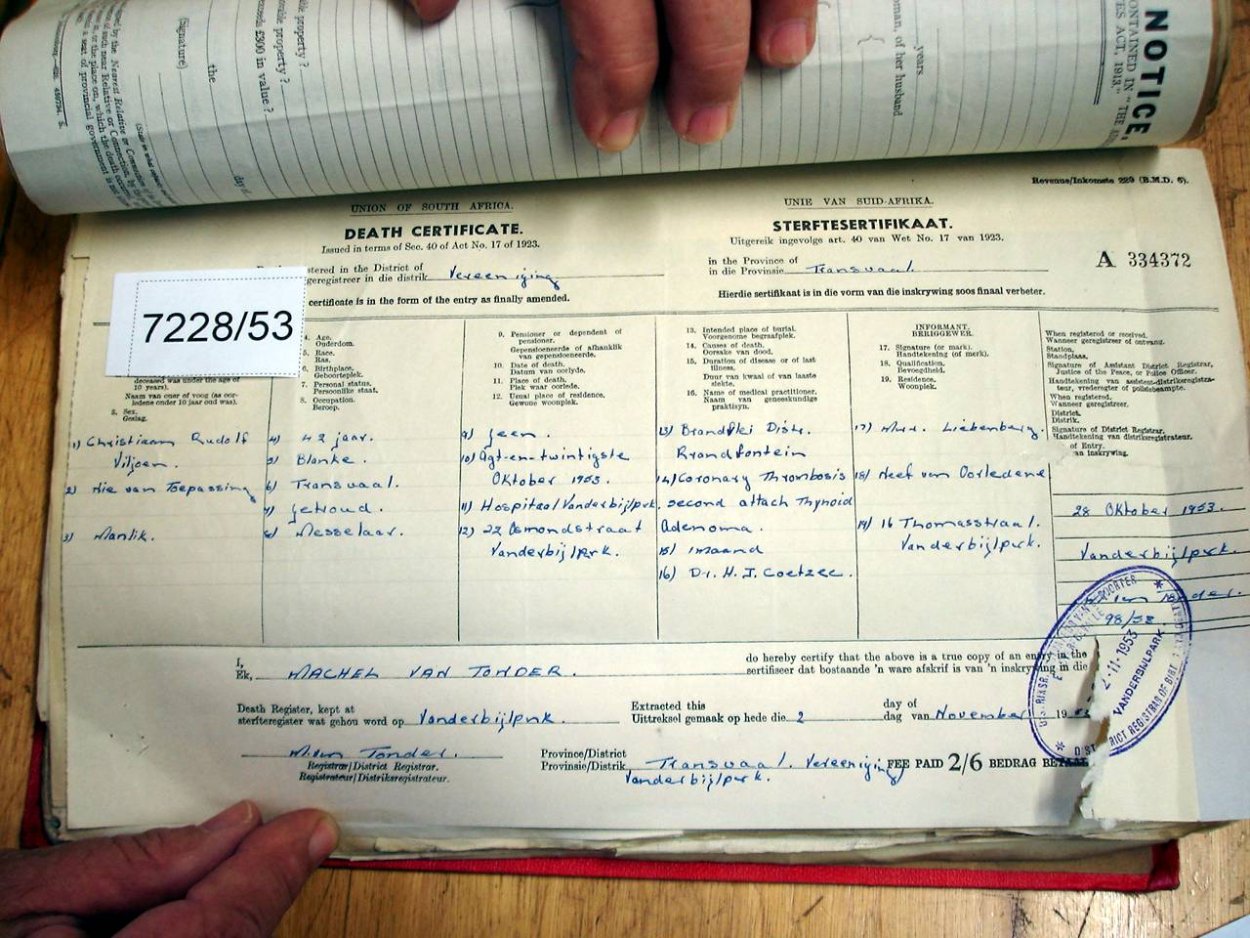 NOTICE,
CONTAINED IN "THE
ACT, 1913."
years
of her husband
ble property ?
property ?
£300 in value ?
(Signature)
the
day of
by the Nearest Relative or
of such near Relative or Connection, by the
or the place on, which the death
a seat of provincial government is not
Revenue/Inkomste 229 (B.M.D. 6).
UNION OF SOUTH AFRICA.
UNIE VAN SUID-AFRIKA.
DEATH CERTIFICATE.
STERFTESERTIFIKAAT.
Issued in terms of Sec. 40 of Act No. 17 of 1923.
Uitgereik ingevolge art. 40 van Wet No. 17 van 1923.
registered in the District of
geregistreer in die distrik Vereeniging
in the Province of
in die Provinsie Transvaal.
A 334372
certificate is in the form of the entry as finally amended.
Hierdie sertifikaat is in die vorm van die inskrywing soos finaal verbeter.
7228/53
deceased was under the age of
10 years).
Naam van ouer of voog (as oor-
ledene onder 10 jaar oud was).
3. Sex.
Geslag.
4. Age.
Ouderdom.
5. Race.
Ras.
6. Birthplace.
Geboorteplek.
7. Personal status.
Persoonlike staat.
8. Occupation.
Beroep.
9. Pensioner or dependent of
pensioner.
Gepensioeneerde of afhanklik
van gepensioeneerde.
10. Date of death.
Datum van oorlyde.
11. Place of death.
Plek waar oorlede.
12. Usual place of residence.
Gewone woonplek.
13. Intended place of burial.
Voorgenome begraafplek.
14. Causes of death.
Oorsake van dood.
15. Duration of disease or of last
illness.
Duur van kwaal of van laaste
siekte.
16. Name of medical practitioner.
Naam van geneeskundige
praktisyn.
INFORMANT.
BERIGGEWER.
17. Signature (or mark).
Handtekening (of merk).
18. Qualification.
Bevoegdheid.
19. Residence.
Woonplek.
When registered or received.
Wanneer geregistreer of ontvang.
Station,
Standplaas,
Signature of Assistant District Registrar,
Justice of the Peace, or Police Officer.
Handtekening van assistent-distriksregistra-
teur, vrederegter of polisiebeampte.
When registered.
Wanneer geregistreer.
District,
Distrik.
Signature of District Registrar,
Handtekening van distriksregistrateur.
of Entry.
an inskrywing.
1) Christiaan Rudolf
Viljoen.
2) Nie van Toepassing
3) Manlik.
4) 42 jaar.
5) Blanke.
6) Transvaal.
7) Getroud.
8) Messelaar.
9) Geen.
10) Agt-en-twintigste
Oktober 1953.
11) Hospitaal Vanderbijlprk.
12) 22 Osmondstraat
Vanderbijlprk.
13) Brandvlei Distr.
Randfontein
14) Coronary Thrombosis
second attach Thynoid
Adenoma.
15) 1 maand
16) Dr. H. J. Coetzee.
17) Liebenberg.
18) Neef van Oorledene
19) 16 Thomasstraat.
Vanderbijlprk.
28 Oktober 1953.
Vanderbijlprk.
98/53
I,
Ek, MACHEL VAN TONDER.
do hereby certify that the above is a true copy of an entry in the
sertifiseer dat bostaande 'n ware afskrif is van 'n inskrywing in die
Death Register, kept at
sterfteregister wat gehou word op Vanderbijlprk.
Extracted this
Uittreksel gemaak op hede die 2
day of
dag van November 19
M. van Tonder.
Registrar/District Registrar.
Registrateur/Distriksregistrateur.
Province/District
Provinsie/Distrik Transvaal. Vereeniging
Vanderbijlprk.
FEE PAID 2/6 BEDRAG
2-11-1953
VANDERBIJLPARK
DISTRICT REGISTRAR OF